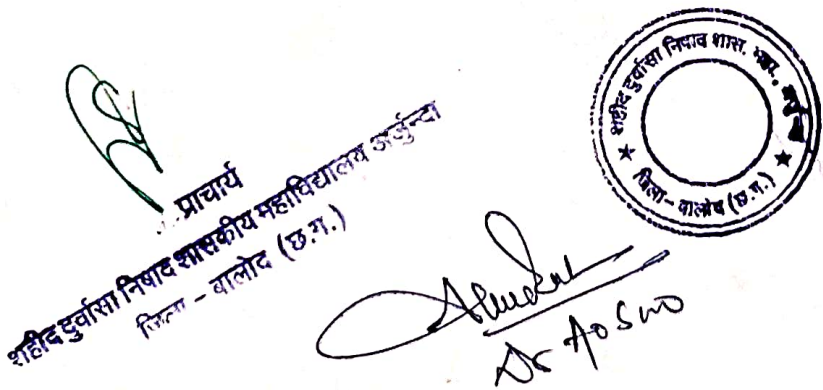 प्राचार्य
शहीद दुर्वासा निषाद शासकीय महाविद्यालय अर्जुन्दा
जिला - बालोद (छ.ग.)
शहीद दुर्वासा निषाद शास. महा., अर्जुन्दा
★ जिला - बालोद (छ.ग.) ★
Dr